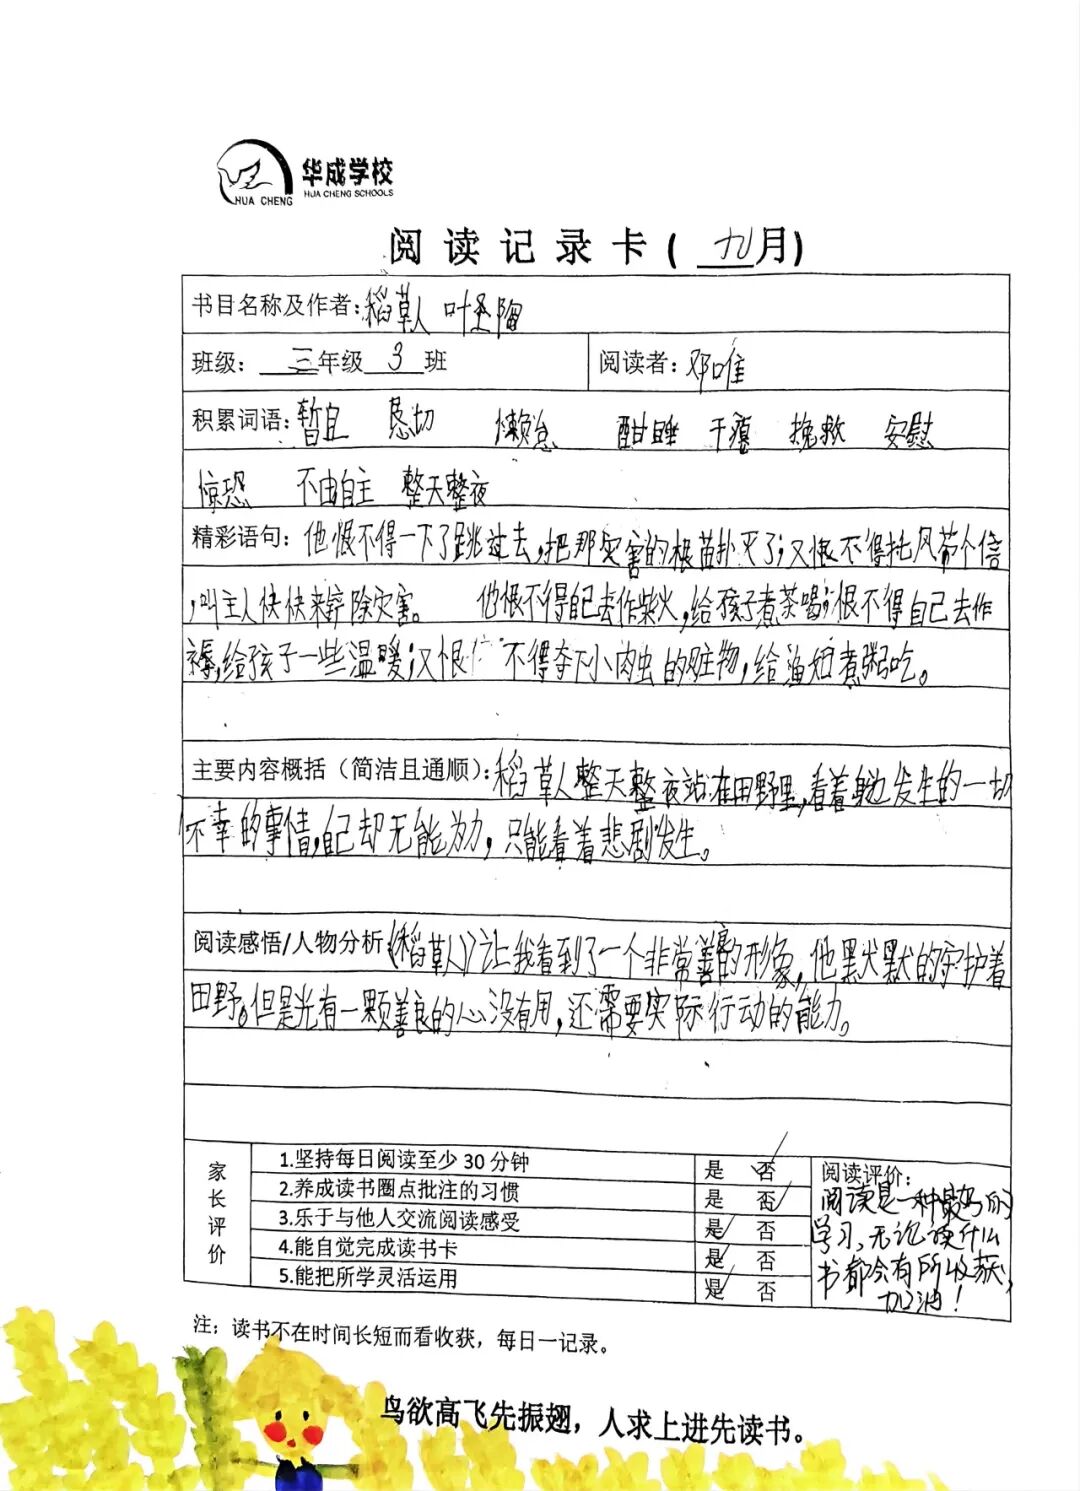 华成学校
HUA CHENG SCHOOLS
HUA CHENG
阅读记录卡(九月)
书目名称及作者:稻草人 叶圣陶
班级: 三年级 3 班 阅读者:邓唯
积累词语:暂且 恳切 懒怠 酣睡 干瘪 挽救 安慰
惊恐 不由自主 整天整夜
精彩语句: 他恨不得一下子跳过去,把那灾害的根苗扑灭了;又恨不得托风带个信
,叫主人快快来铲除灾害。 他恨不得自己去作柴火,给孩子煮茶喝;恨不得自己去作
褥,给孩子一些温暖;又恨 不得夺下小肉虫的赃物,给渔妇煮粥吃。
主要内容概括(简洁且通顺):稻草人整天整夜站在田野里,看着身边发生的一切
不幸的事情,自己却无能为力,只能看着悲剧发生。
阅读感悟/人物分析:《稻草人》让我看到了一个非常善良的形象,他默默的守护着
田野。但是光有一颗善良的心没有用,还需要实际行动的能力。
家长评价
1.坚持每日阅读至少 30 分钟 是 否
2.养成读书圈点批注的习惯 是 否
3.乐于与他人交流阅读感受 是 否
4.能自觉完成读书卡 是 否
5.能把所学灵活运用 是 否
阅读评价:
阅读是一种最好的
学习,无论读什么
书都会有所收获,
加油!
注:读书不在时间长短而看收获,每日一记录。
鸟欲高飞先振翅,人求上进先读书。